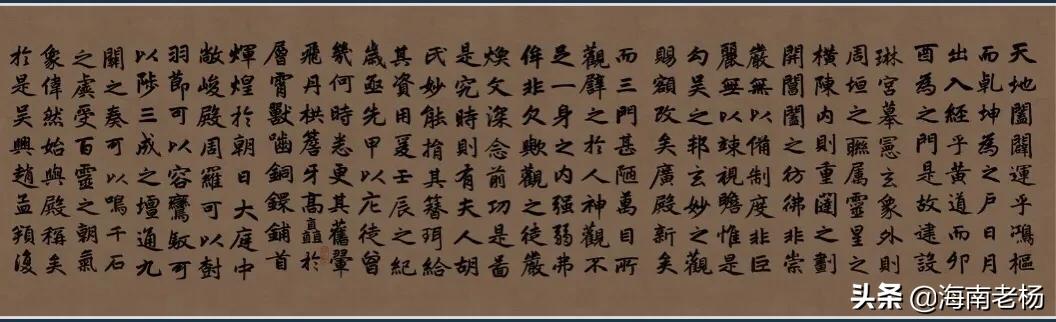 天地闔闢運乎鴻樞
而乹坤為之戶日月
出入經乎黃道而卯
酉為之門是故建設
琳宮摹憲玄象外則
周垣之聯属靈星之
橫陳内則重闥之劃
開閶闔之彷彿非崇
嚴無以備制度非巨
麗無以竦視瞻惟是
勾吳之邦玄妙之觀
賜額改矣廣殿新矣
而三門甚陋萬目所
觀譬之於人神觀不
足一身之内强弱弗
侔非欠歟觀之徒嚴
煥文深念前功是啚
是究時則有夫人胡
氏妙能捐其簪珥給
其資用爰壬辰之紀
歲亟先甲以庀徒曾
幾何時悉更其舊翬
飛丹栱簷牙高矗於
層霄獸齧銅鐶鋪首
輝煌於朝日大庭中
敞峻殿周羅可以樹
羽節可以容鸞馭可
以陟三成之壇通九
關之奏可以鳴千石
之虡受百靈之朝氣
象偉然始與殿稱矣
於是吳興趙孟頫復
头条@海南老杨